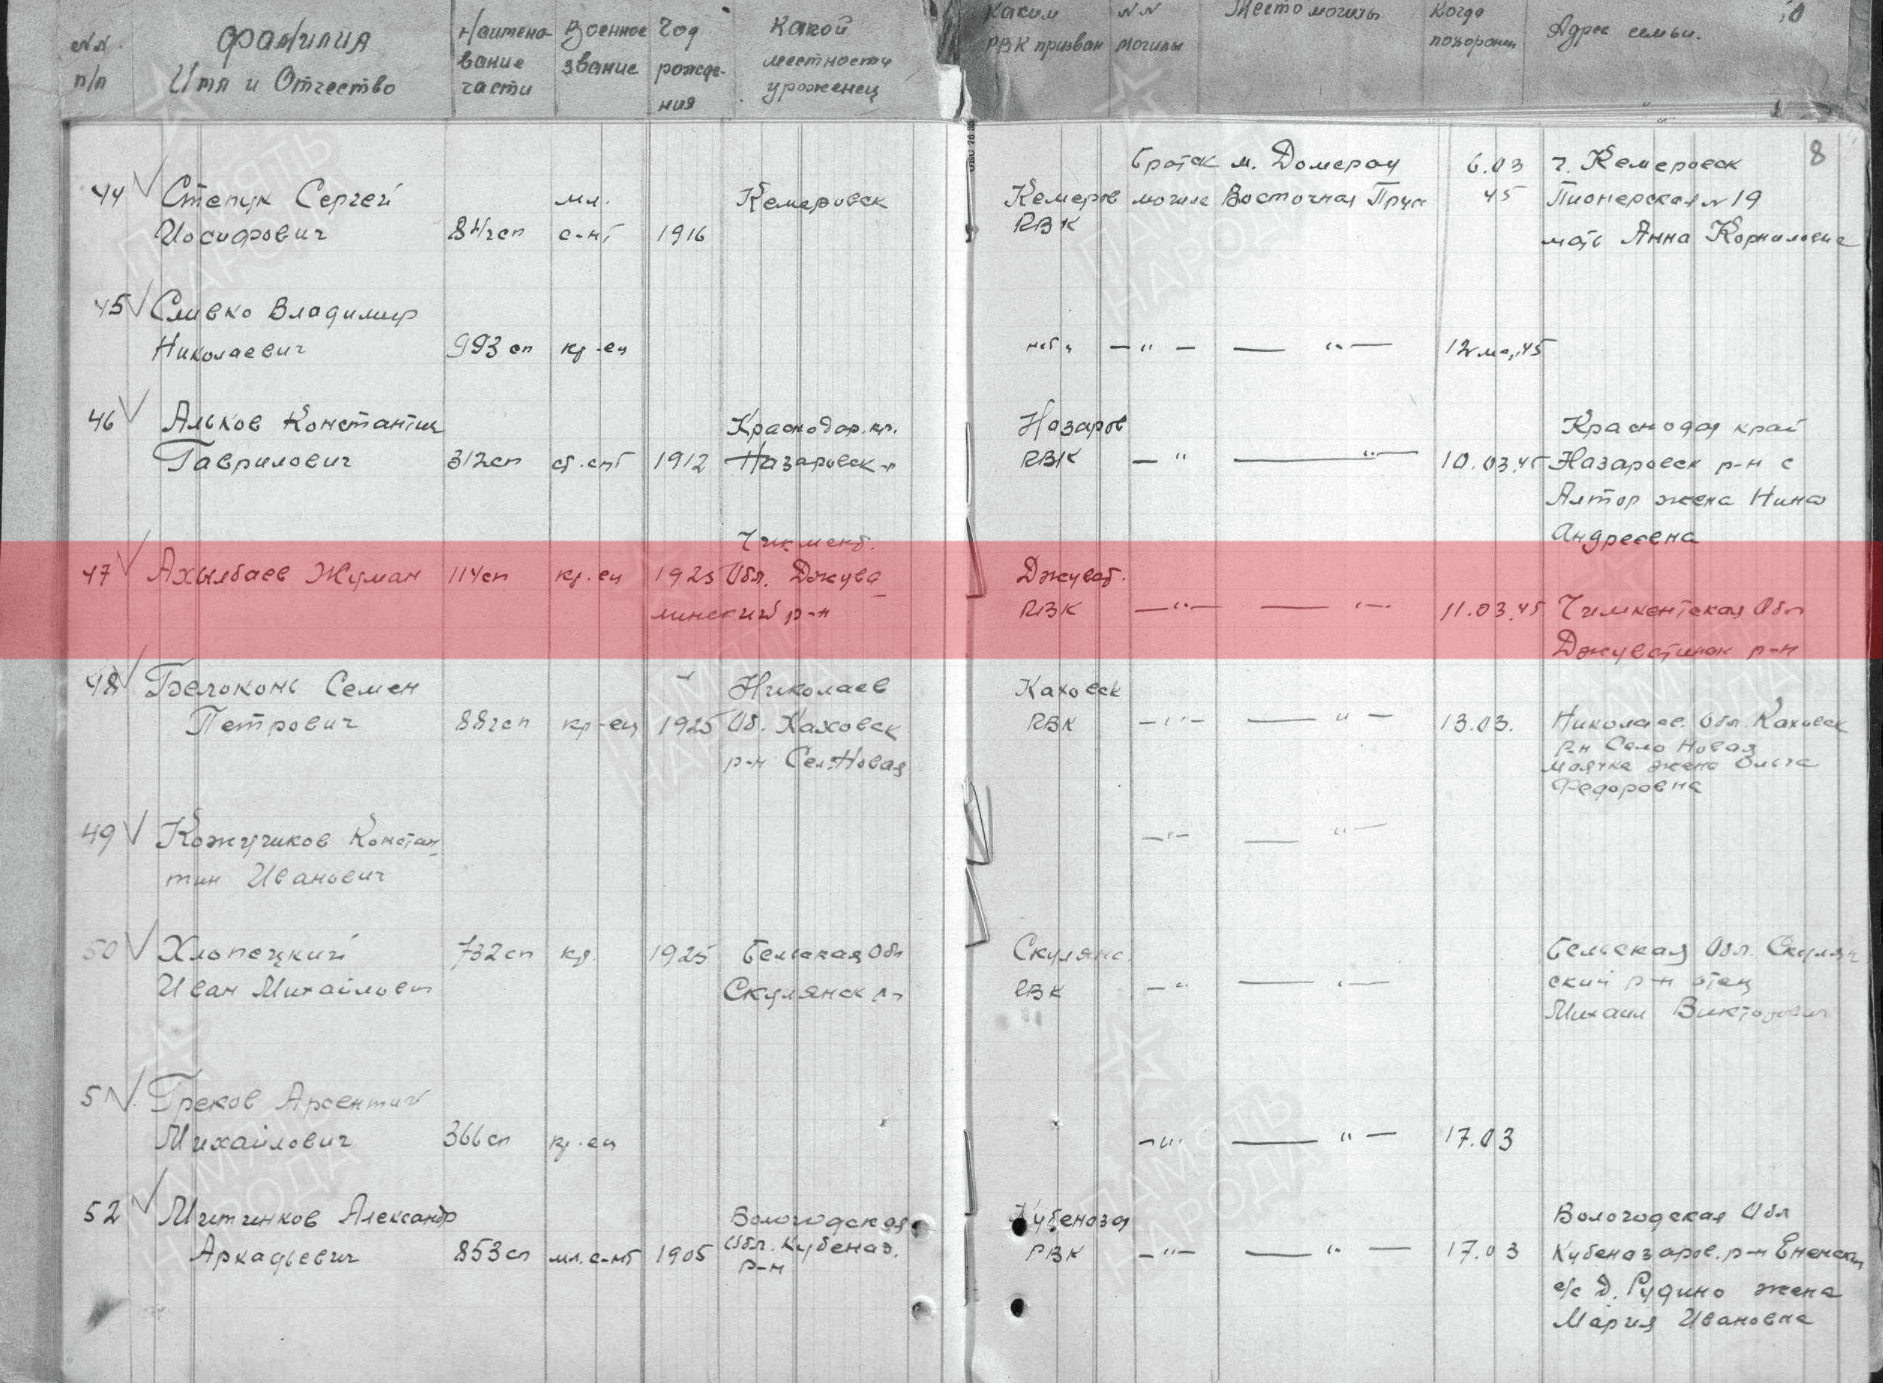 NN п/п
Фамилия Имя и Отчество
Наимено-вание части
Военное звание
Год рожде-ния
Какой местности уроженец
Каким РВК призван
NN могилы
Место могилы
Когда похоронен
Адрес семьи.
8
44 Степук Сергей Иосифович 84 гсп мл. с-нт 1916 Кемеровск Кемеров РВК Братск могиле м. Домерау Восточная Прус 6.03 45 г. Кемеровск Пионерская N 19 мать Анна Корниловна
45 Сливко Владимир Николаевич 993 сп кр-ец —"— —"— 12 45
46 Альков Константин Гаврилович 312 сп ст. снт 1912 Краснодар. кр. Назаровск Назаров РВК —"— —"— 10.03.45 Краснодая край Назаровск р-н с Алтор жена Нина Андреевна
47 Ахылбаев Жуман 114 сп кр-ец 1925 Чикмент. Обл. Джува-минский р-н Джуват. РВК —"— —"— 11.03.45 Чимкентская Обл р-н
48 Белоконь Семен Петрович 88 гсп кр-ец 1925 Николаев Об. Каховск р-н Сел. Новая Каховск РВК —"— —"— 13.03. Николаев. Обл. Каховск р-н Село Новая маячка жена Ольга Федоровна
49 Кожучиков Констан-тин Иванович —"— —"—
50 Хлопецкий Иван Михайлович 732 сп кр. 1925 Бельская Обл Скулянск Скулянс. РВК —"— —"— Бельская Обл. Скулян ский р-н отец Михаил Викторович
51 Греков Арсентий Михайлович 366 сп кр-ец —"— —"— 17.03
52 Митинков Александр Аркадьевич 853 сп мл. с-нт 1905 Вологодская Обл. Кубеназ. р-н Кубеназа РВК —"— —"— 17.03 Вологодская Обл Кубеназаров. р-н с/с Д. Рудино жена Мария Ивановна
ПАМЯТЬ НАРОДА
ПАМЯТЬ НАРОДА
ПАМЯТЬ НАРОДА
ПАМЯТЬ НАРОДА
ПАМЯТЬ НАРОДА